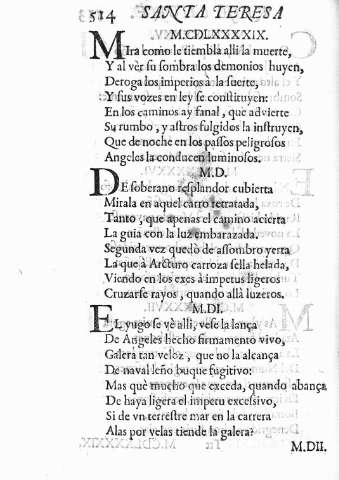 514 SANTA TERESA
M.CDLXXXXIX.
MIra como le tiembla alli la muerte,
Y al vèr su sombra los demonios huyen,
Deroga los imperios à la suerte,
Y sus vozes en ley se constituyen:
En los caminos ay fanal, que advierte
Su rumbo, y astros fulgidos la instruyen,
Que de noche en los passos peligrosos
Angeles la conducen luminosos.
M.D.
DE soberano resplandor cubierta
Mirala en aquel carro retratada,
Tanto, que apenas el camino acierta
La guia con la luz embarazada.
Segunda vez quedò de assombro yerta
La que à Arcturo carroza sella helada,
Viendo en los exes à impetus ligeros
Cruzarse rayos, quando allà luzeros.
M.DI.
EL yugo se vè alli, vese la lança
De Angeles hecho firmamento vivo,
Galera tan veloz, que no la alcança
De naval leño buque fugitivo:
Mas què mucho que exceda, quando abança
De haya ligera el impetu excessivo,
Si de vn terrestre mar en la carrera
Alas por velas tiende la galera?
M.DII.